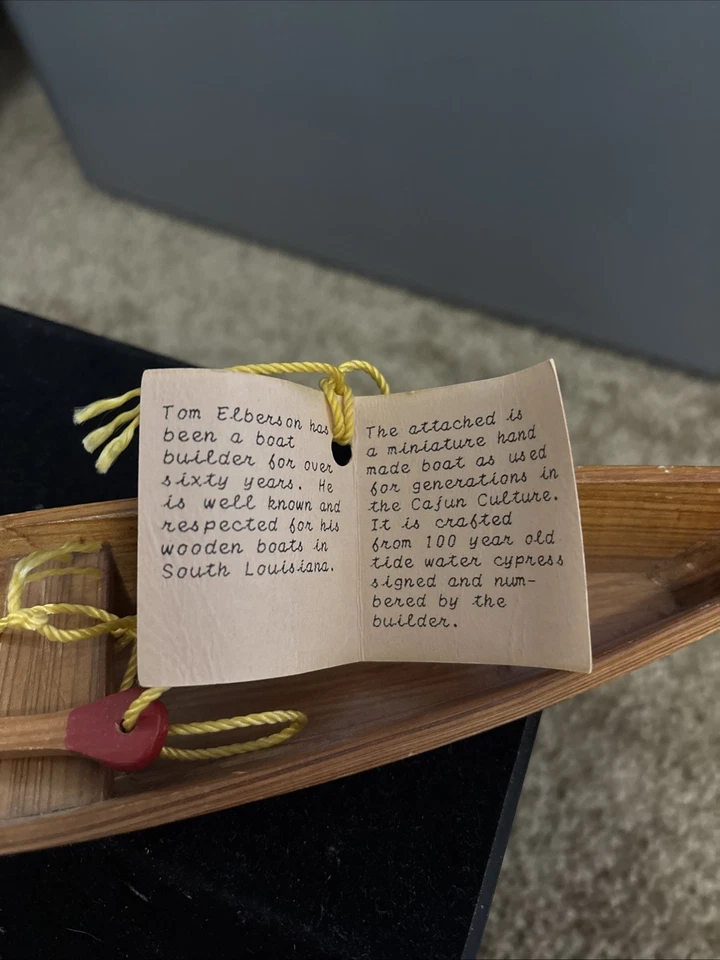 Tom Elberson has
been a boat
builder for over
sixty years. He
is well known and
respected for his
wooden boats in
South Louisiana.
The attached is
a miniature hand
made boat as used
for generations in
the Cajun Culture.
It is crafted
from 100 year old
tide water cypress
signed and num-
bered by the
builder.